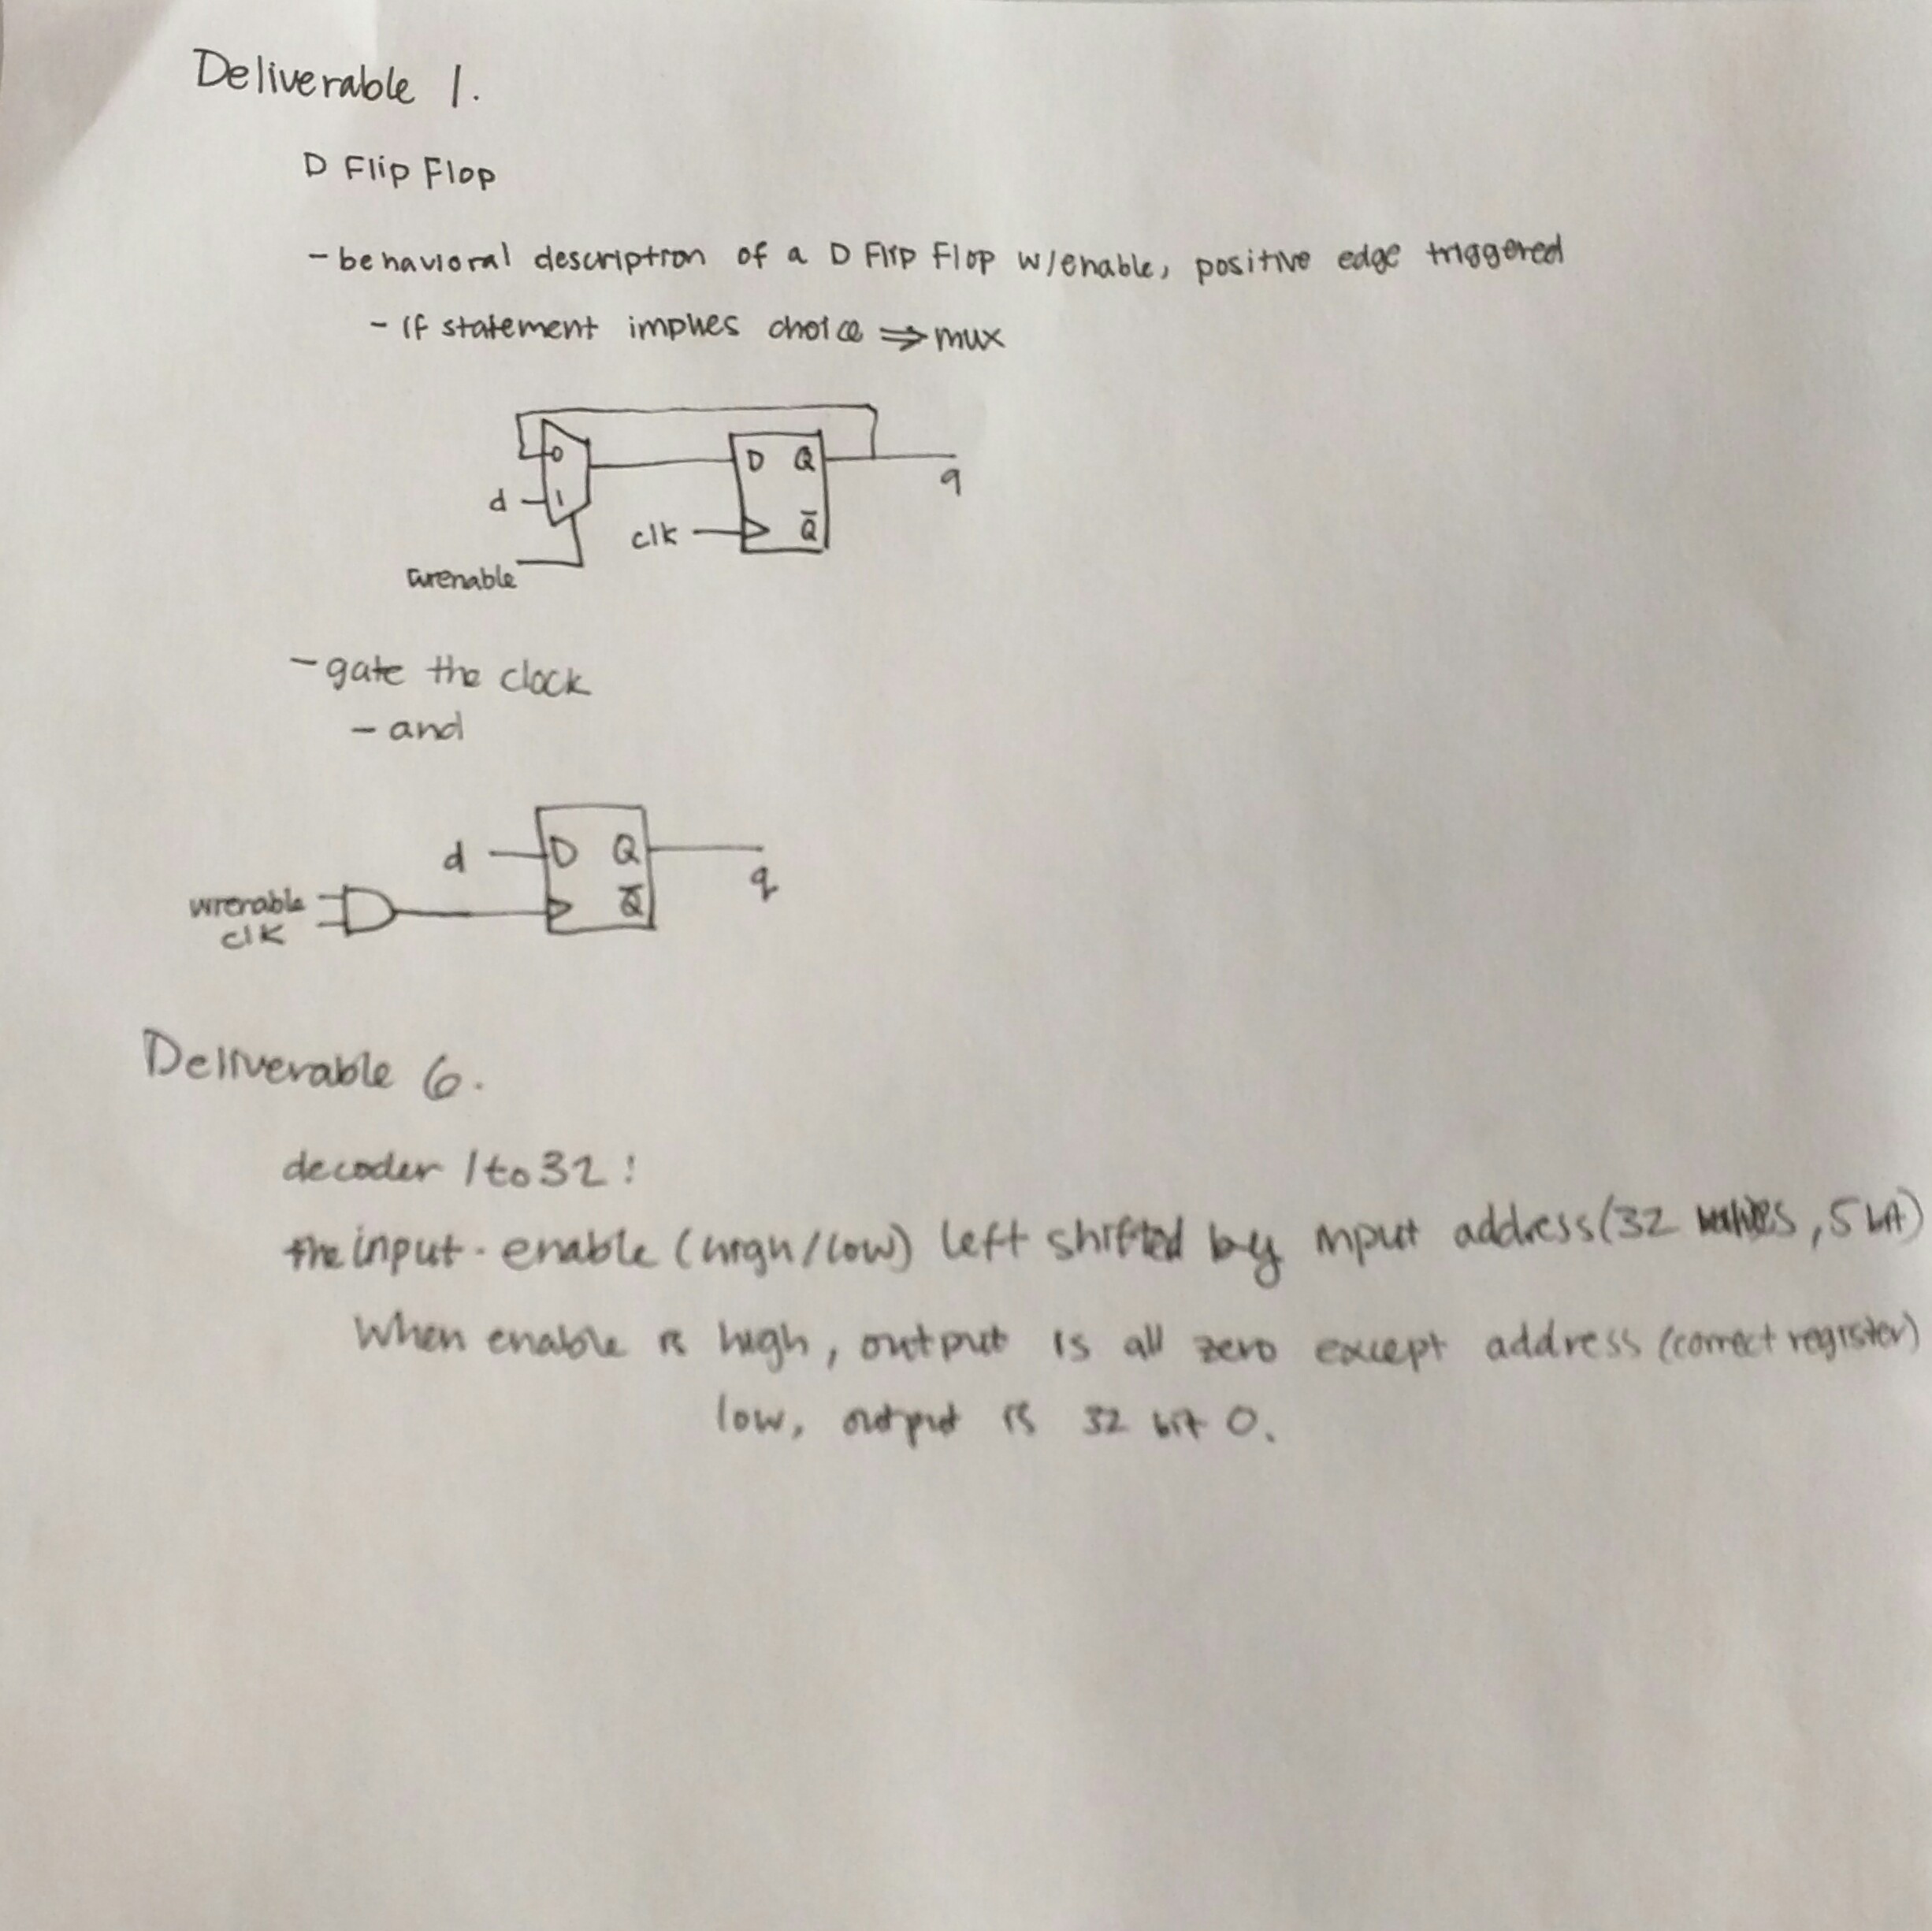 Deliverable 1.
D Flip Flop
- behavioral description of a D Flip Flop w/enable, positive edge triggered
- if statement implies choice ⇒ mux
0
D Q
q
d
1
clk
Q̅
wrenable
- gate the clock
- and
d
D Q
q
wrenable
Q̅
clk
Deliverable 6.
decoder 1to32:
the input enable (high/low) left shifted by input address (32 values, 5 bit)
When enable is high, output is all zero except address (correct register)
low, output is 32 bit 0.